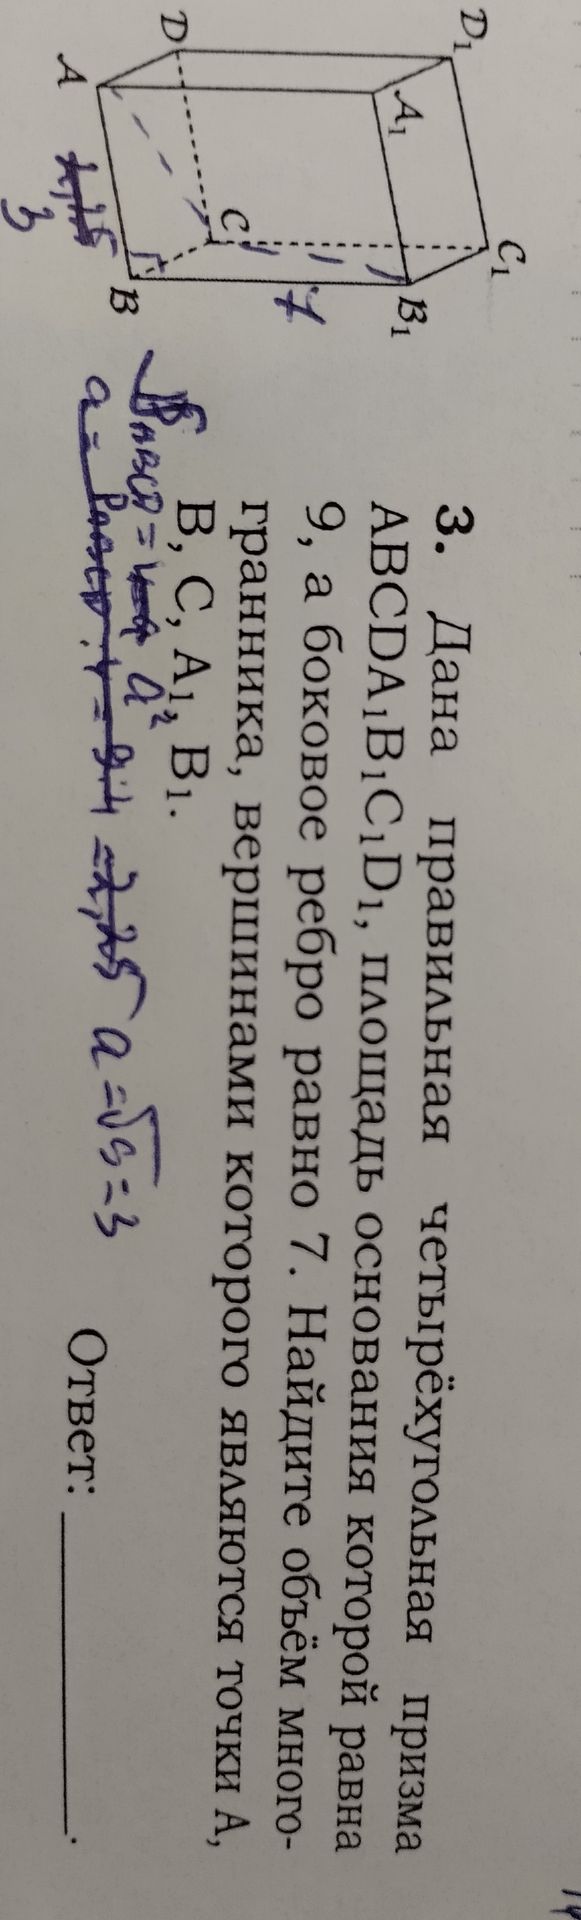 3. Дана правильная четырёхугольная призма
ABCDA₁B₁C₁D₁, площадь основания которой равна
9, а боковое ребро равно 7. Найдите объём много-
гранника, вершинами которого являются точки A,
B, C, A₁, B₁.
Ответ: ____________.
D₁
C₁
A₁
B₁
7
D
C
A
B
3
ABCD = a²
a = √9 = 3